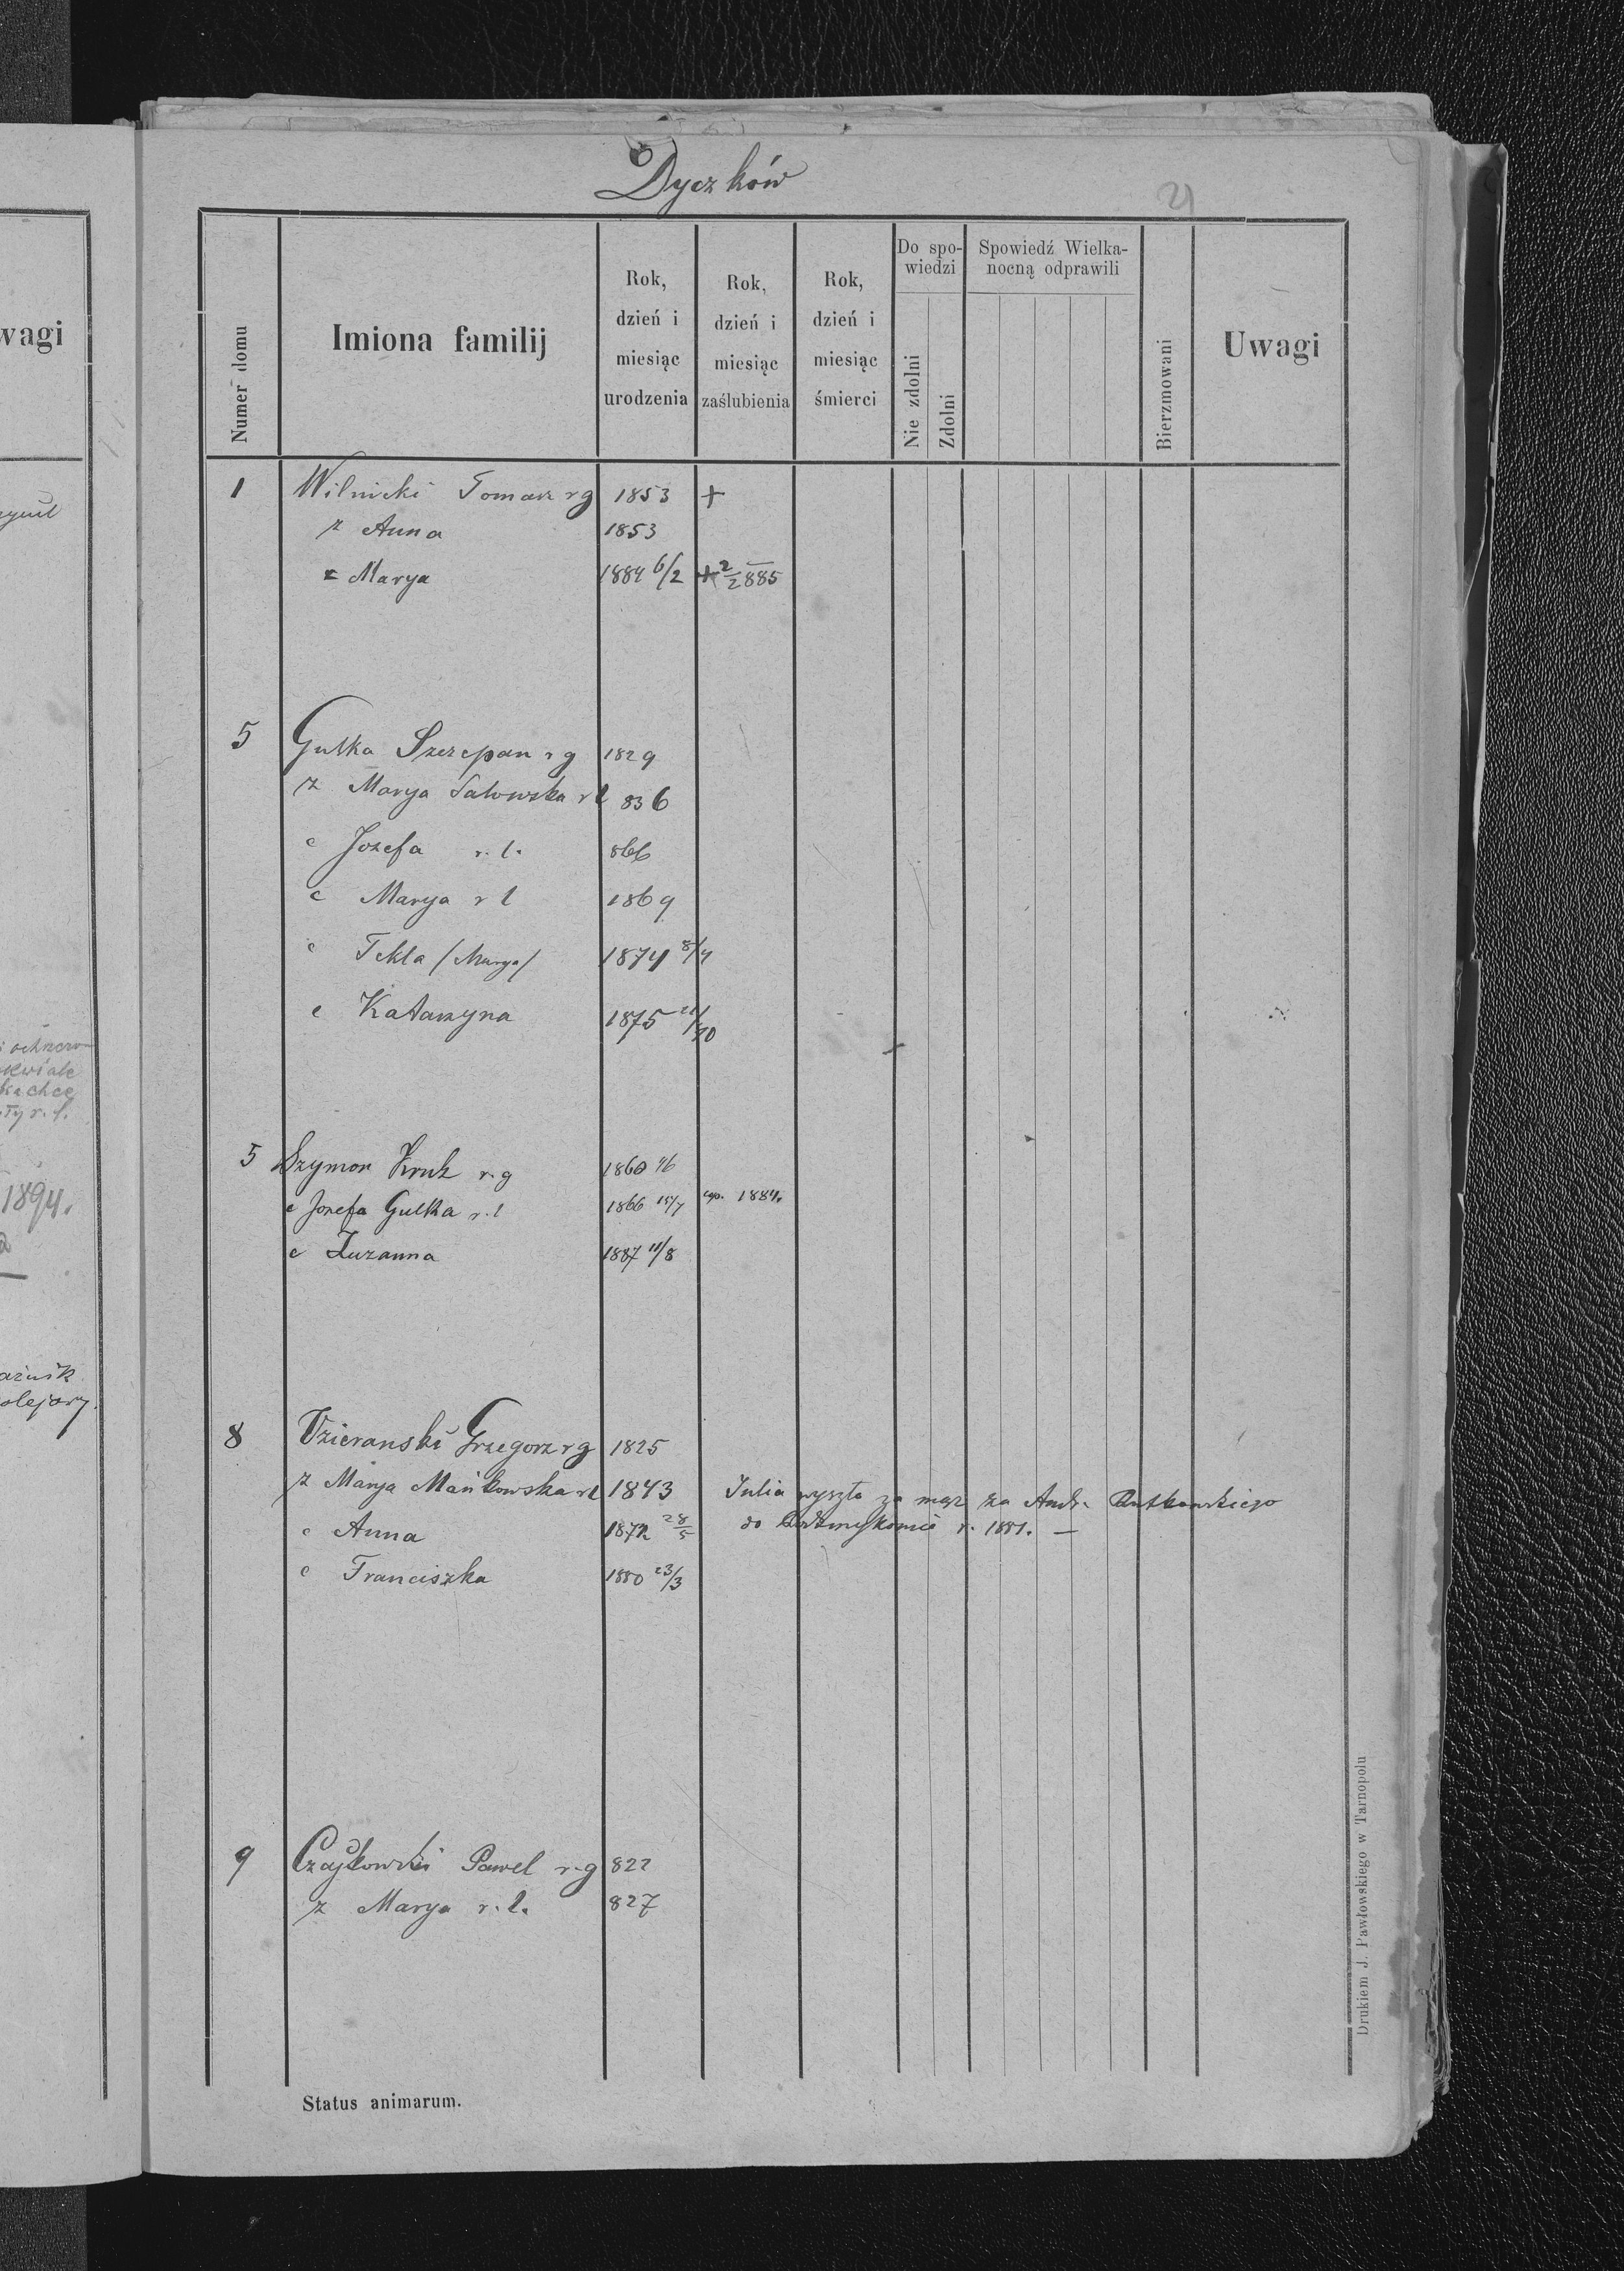 Dyczków
21
wagi
Numer domu
Imiona familij
Rok, dzień i miesiąc urodzenia
Rok, dzień i miesiąc zaślubienia
Rok, dzień i miesiąc śmierci
Do spo-
wiedzi
Nie zdolni
Zdolni
Spowiedź Wielka-
nocną odprawili
Bierzmowani
Uwagi
1 Wilnicki Tomasz rg 1853 +
ż Anna 1853
c Marya 1884 6/2 + 2/2 885
5 Gulka Szczepan rg 1829
ż Marya rl 836
c Jozefa r.l. 866
c Marya rl 1869
c Tekla /Marya/ 1874 8/4
c Katarzyna 1875 21/10
5 Szymon Kruk r.g 1860
c Jozefa Gulka r.l 1866 15/7 cop. 1884.
c Zuzanna 1887 11/8
8 Uzieranski Grzegorz rg 1825
ż Marya Mańkowska rl 1843 Julia wyszła za mąż za Andr. Rutkowskiego
c Anna 1872 28/5 do r. 1881. —
c Franciszka 1880 23/3
9 Czajkowski Pawel r.g 822
ż Marya r.l. 827
1894.
Status animarum.
Drukiem J. Pawłowskiego w Tarnopolu